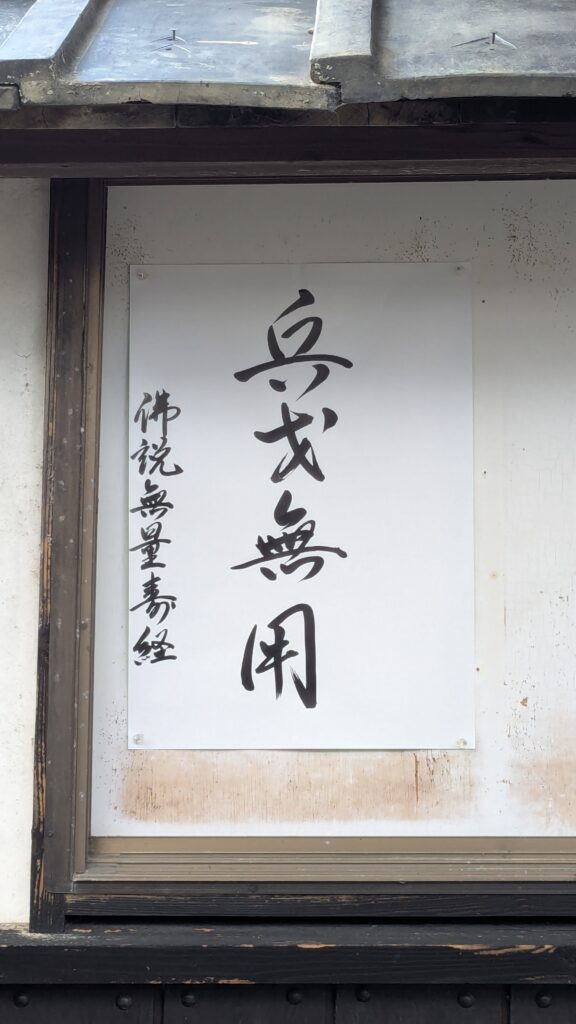 兵戈無用
佛説無量寿経